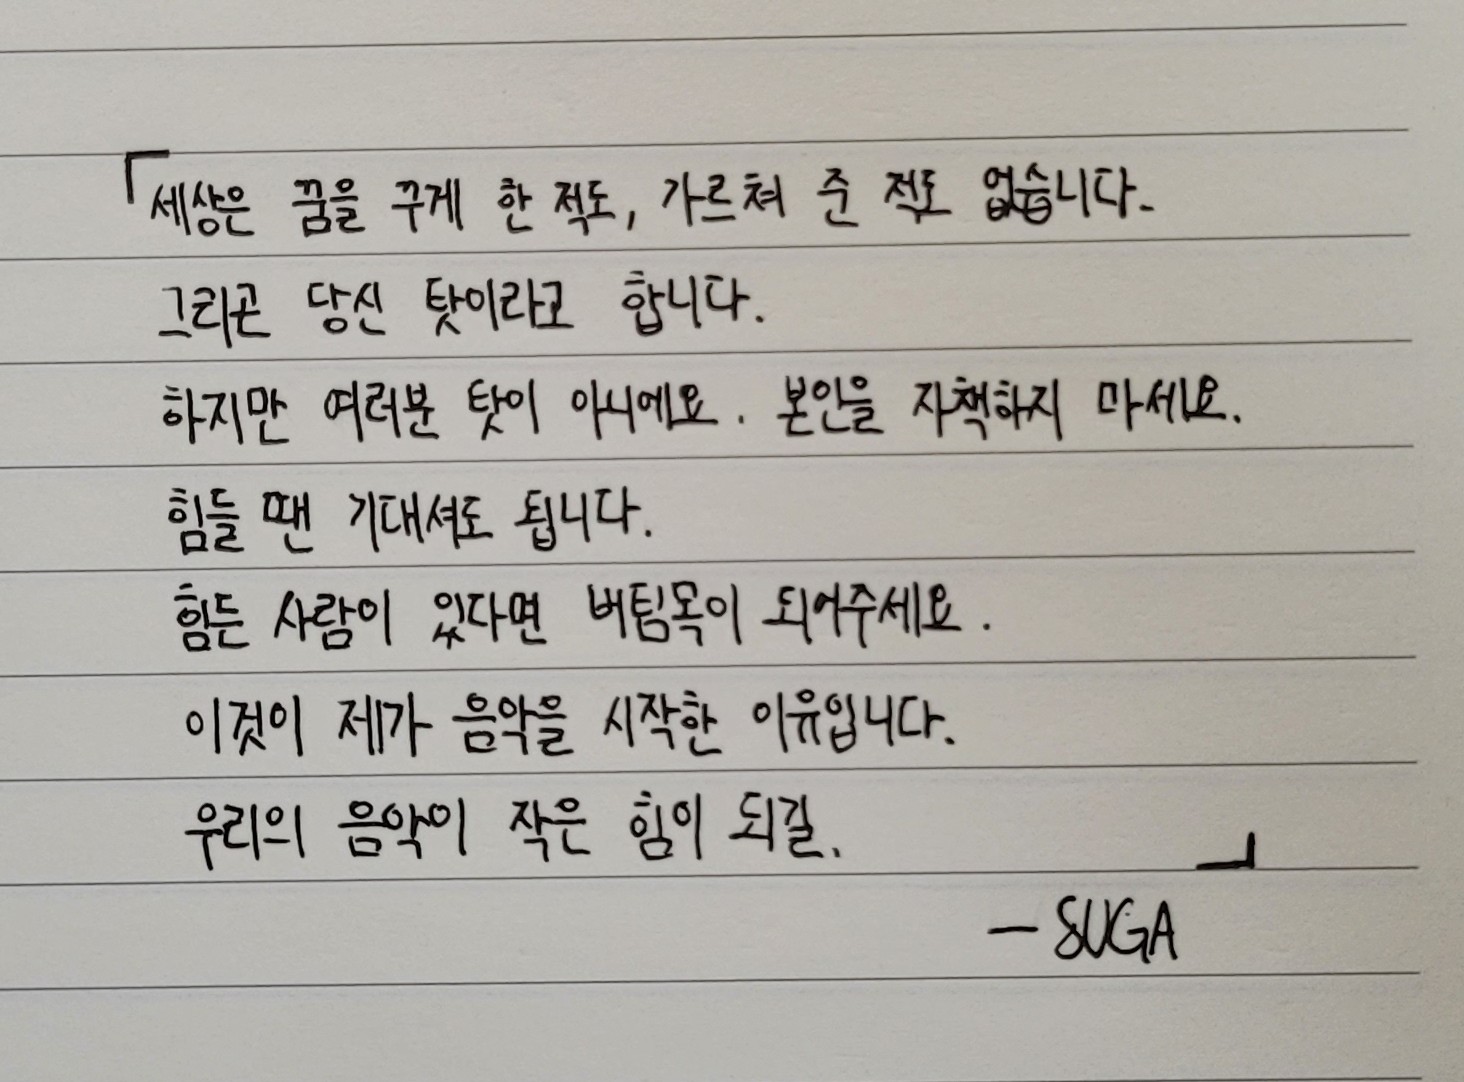 「세상은 꿈을 꾸게 한 적도, 가르쳐 준 적도 없습니다.
그리곤 당신 탓이라고 합니다.
하지만 여러분 탓이 아니에요. 본인을 자책하지 마세요.
힘들 땐 기대셔도 됩니다.
힘든 사람이 있다면 버팀목이 되어주세요.
이것이 제가 음악을 시작한 이유입니다.
우리의 음악이 작은 힘이 되길.」
— SUGA